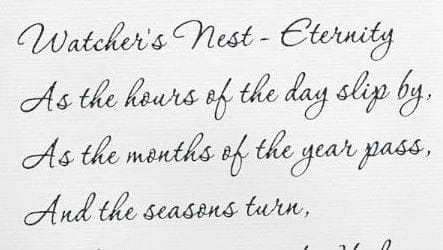 Watcher's Nest - Eternity
As the hours of the day slip by,
As the months of the year pass,
And the seasons turn,